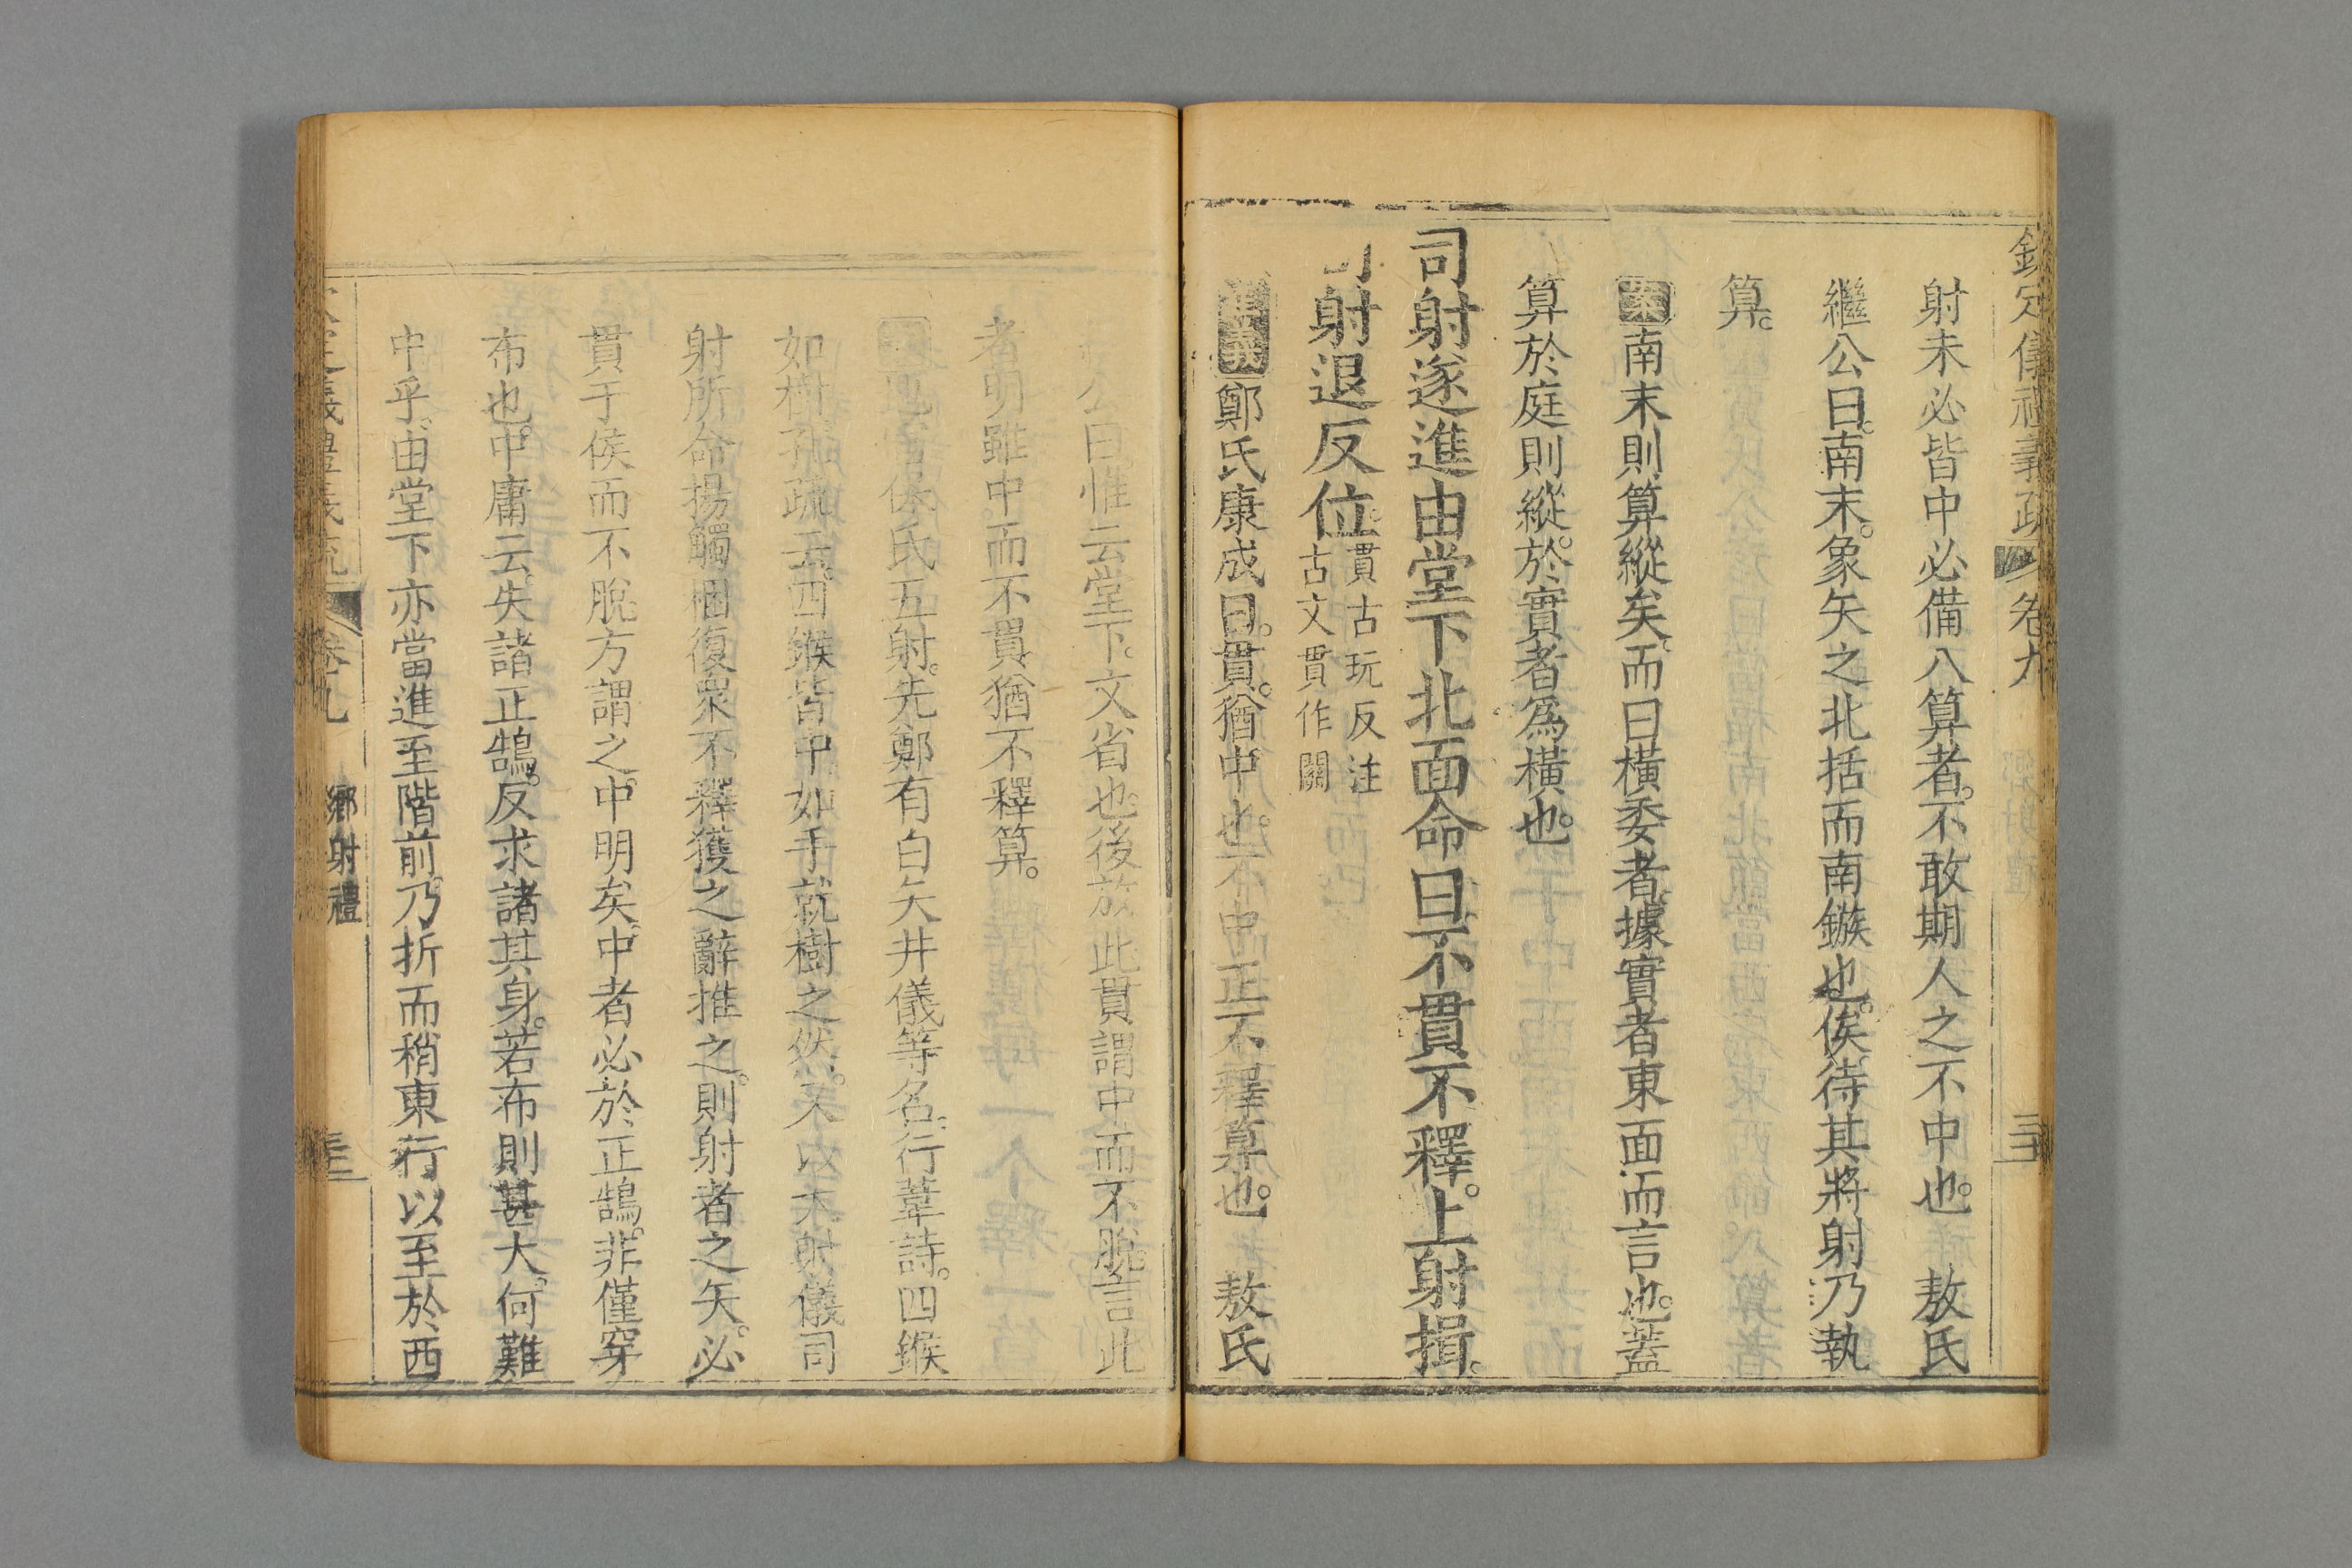 欽定儀禮義疏 卷九
射未必皆中必備八算者。不敢期人之不中也。 敖氏
繼公曰。南末。象矢之北括而南鏃也。俟待其將射乃執
算。
案南末則算縱矣。而曰橫委者。據實者東面而言也。蓋
算於庭則縱。於實者爲橫也。
司射遂進由堂下北面命曰不貫不釋。上射揖。
司射退反位。貫古玩反注
古文貫作關
正義鄭氏康成曰。貫。猶中也。不中正不釋算也。 敖氏
公曰惟云堂下。文省也。後放此貫謂中而不脫。言此
者明雖中。而不貫猶不釋算。
保氏五射。先鄭有白矢井儀等名。行葦詩。四鍭
如樹。孔疏云。四鍭皆中。如手就樹之然。又以大射儀司
射所命揚觸梱復眾不釋獲之辭推之。則射者之矢。必
貫于侯而不脫方謂之中明矣。中者必於正鵠。非僅穿
布也。中庸云。失諸正鵠。反求諸其身。若布則甚大。何難
中乎。由堂下亦當進至階前。乃折而稍東行以至於西
卷九 鄉射禮